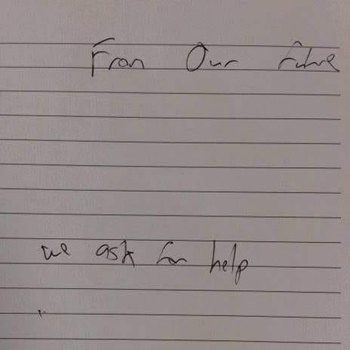 From Our future
we ask for help